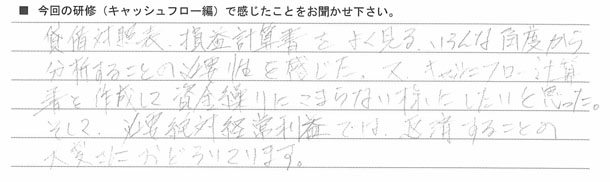 ■ 今回の研修（キャッシュフロー編）で感じたことをお聞かせ下さい。
貸借対照表、損益計算書をよく見る、いろんな角度から
分析することの必要性を感じた。又、キャッシュフロー計算
書を作成して資金繰りにこまらない様にしたいと思った。
そして、必要絶対経常利益では、返済することの
大変さにおどろいてります。